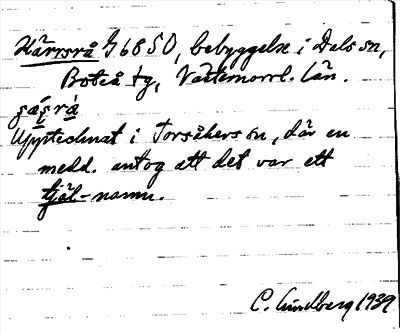 Kärrsrå G6850, bebyggelse i Dals sn,
Boteå tg, Västernorrl. län.
Upptecknat i Torsåkers sn, där en
medd. antog att det var ett
tjäl-namn.
C. Lindberg 1939